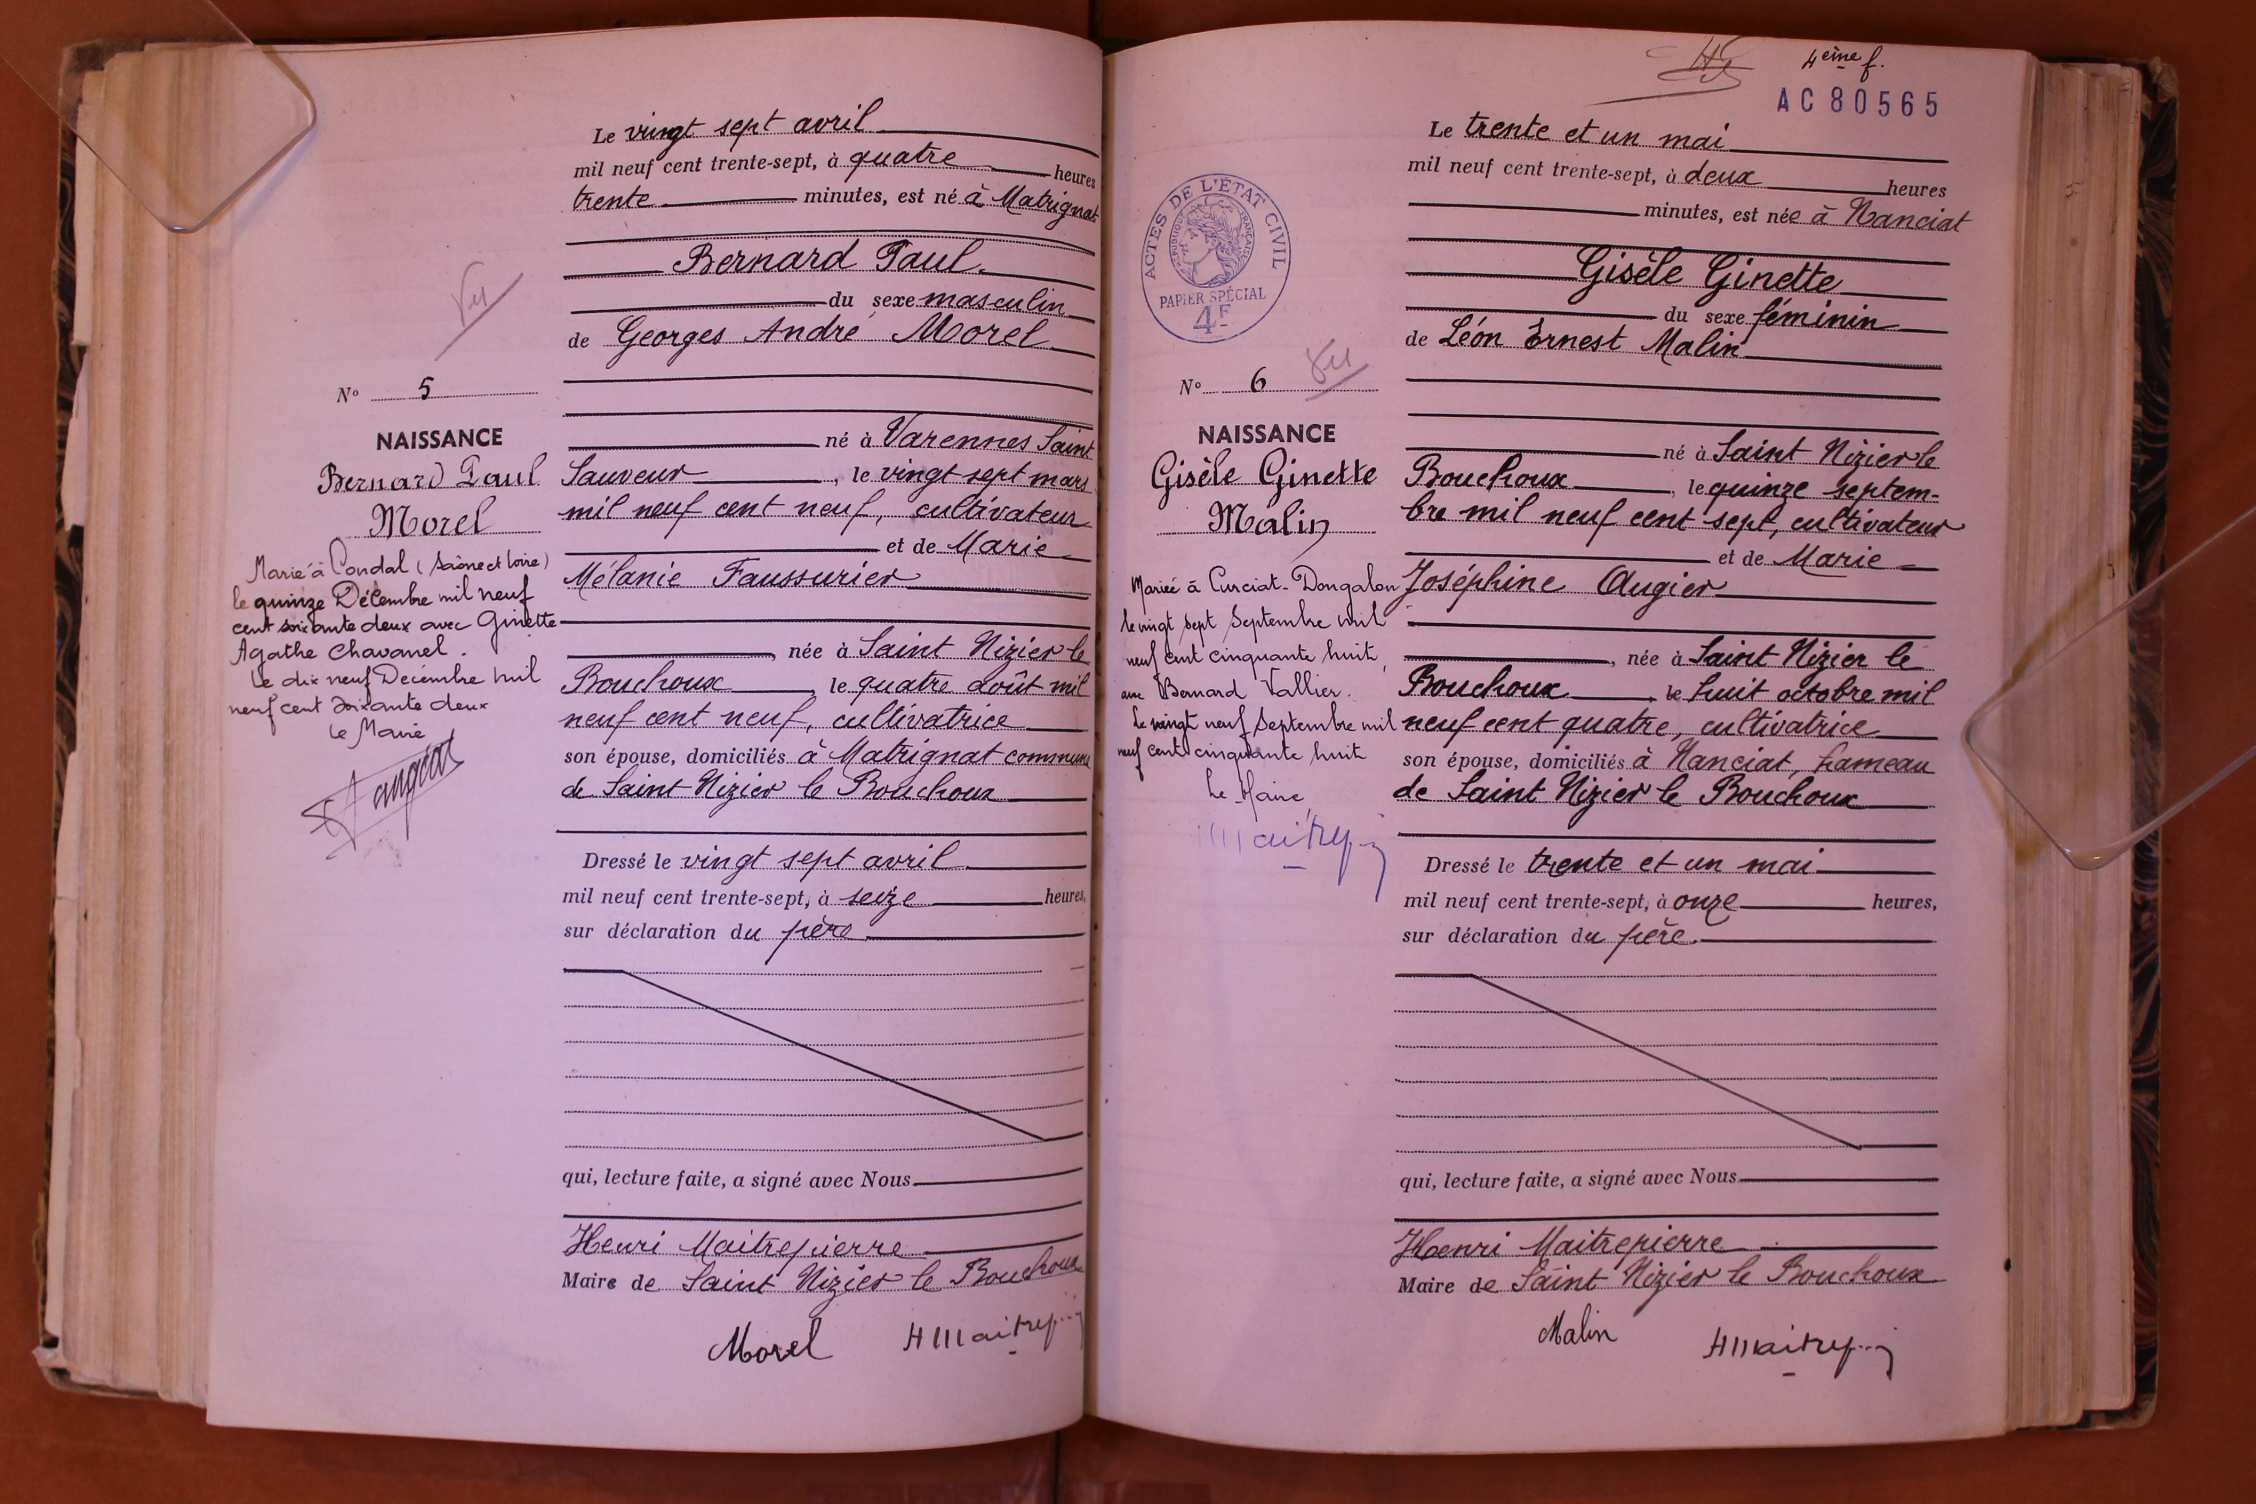 Le vingt sept avril
mil neuf cent trente-sept, à quatre heures
trente minutes, est né à Matrignat
Bernard Paul.
du sexe masculin
de Georges André Morel
Vu
N° 5
NAISSANCE
Bernard Paul
Morel
né à Varennes Saint
Sauveur, le vingt sept mars
mil neuf cent neuf, cultivateur
et de Marie
Mélanie Faussurier
née à Saint Nizier le
Bouchoux, le quatre août mil
neuf cent neuf, cultivatrice
son épouse, domiciliés à Matrignat commune
de Saint Nizier le Bouchoux
Marié à Condal (Saône et Loire)
le quinze Décembre mil neuf
cent soixante deux avec Ginette
Agathe Chavanel.
Le dix neuf Décembre mil
neuf cent soixante deux
Le Maire
Dressé le vingt sept avril
mil neuf cent trente-sept, à seize heures,
sur déclaration du père
qui, lecture faite, a signé avec Nous
Henri Maitrepierre
Maire de Saint Nizier le Bouchoux
Morel
4ème f.
AC 80565
Le trente et un mai
mil neuf cent trente-sept, à deux heures
minutes, est née à Nanciat
Gisèle Ginette
du sexe féminin
de Léon Ernest Malin
ACTES DE L'ÉTAT CIVIL
RÉPUBLIQUE FRANÇAISE
PAPIER SPÉCIAL
4F
Vu
N° 6
NAISSANCE
Gisèle Ginette
Malin
né à Saint Nizier le
Bouchoux, le quinze septem-
bre mil neuf cent sept, cultivateur
et de Marie
Joséphine Augier
née à Saint Nizier le
Bouchoux, le huit octobre mil
neuf cent quatre, cultivatrice
son épouse, domiciliés à Nanciat, hameau
de Saint Nizier le Bouchoux
Mariée à Curciat-Dongalon
le vingt sept Septembre mil
neuf cent cinquante huit,
avec Bernard Vallier.
Le vingt neuf Septembre mil
neuf cent cinquante huit
Le Maire,
Dressé le trente et un mai
mil neuf cent trente-sept, à onze heures,
sur déclaration du père.
qui, lecture faite, a signé avec Nous
Henri Maitrepierre
Maire de Saint Nizier le Bouchoux
Malin